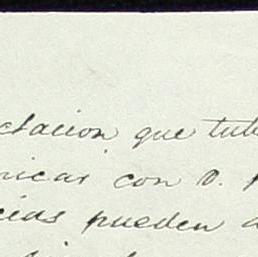 ctacion que tub
nicar con D.
cias pueden